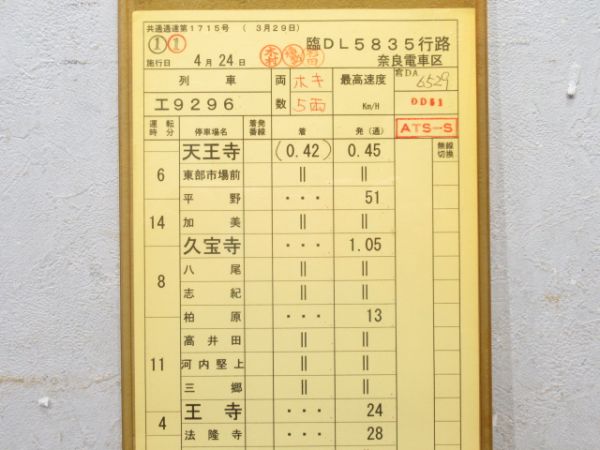 共通過速第1715号 ( 3月29日)
① ① 臨DL5835行路
施行日 4月24日 奈良電車区
列車 両数 ホキ 5両 最高速度 Km/H 6529
工9296 OD51
運転時分 停車場名 着発番線 着 発(通) ATS-S 無線切換
天王寺 (0.42) 0.45
6 東部市場前 || ||
平野 ・・・ 51
14 加美 || ||
久宝寺 ・・・ 1.05
8 八尾 || ||
志紀 || ||
柏原 ・・・ 13
高井田 || ||
11 河内堅上 || ||
三郷 || ||
王寺 ・・・ 24
4 法隆寺 ・・・ 28